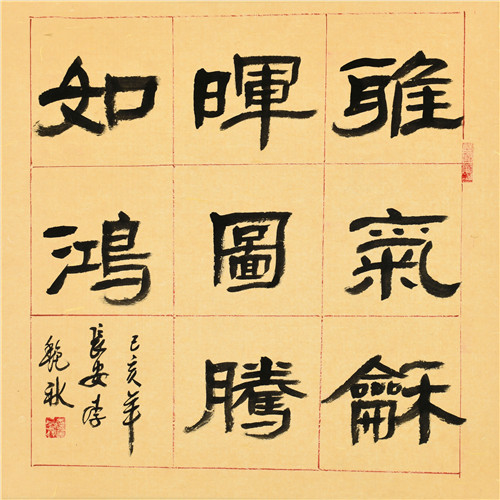 雅氣龢
暉圖騰
如鴻
己亥年
長安李
秋